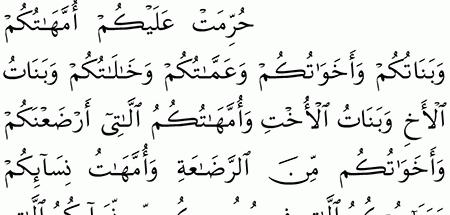 حُرِّمَتْ عَلَيْكُمْ أُمَّهَـٰتُكُمْ
وَبَنَاتُكُمْ وَأَخَوَٰتُكُمْ وَعَمَّـٰتُكُمْ وَخَـٰلَـٰتُكُمْ وَبَنَاتُ
ٱلْأَخِ وَبَنَاتُ ٱلْأُخْتِ وَأُمَّهَـٰتُكُمُ ٱلَّـٰتِىٓ أَرْضَعْنَكُمْ
وَأَخَوَٰتُكُم مِّنَ ٱلرَّضَـٰعَةِ وَأُمَّهَـٰتُ نِسَآئِكُمْ